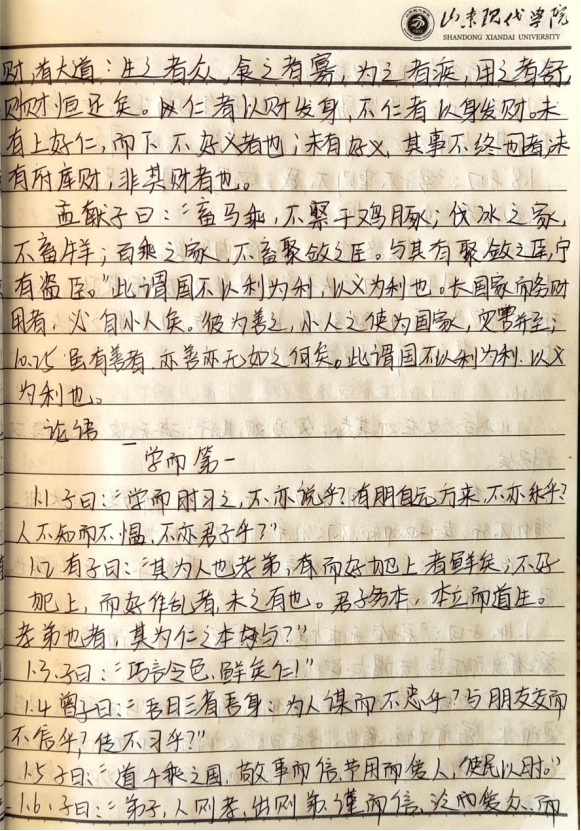 山东现代学院
SHANDONG XIANDAI UNIVERSITY
财,有大道:生之者众,食之者寡,为之者疾,用之者舒
则财恒足矣。仁者以财发身,不仁者以身发财。未
有上好仁,而下不好义者也;未有好义,其事不终者;未
有府库财,非其财者也。
孟献子曰:“畜马乘,不察于鸡豚;伐冰之家,
不畜牛羊;百乘之家,不畜聚敛之臣。与其有聚敛之臣,宁
有盗臣。”此谓国不以利为利,以义为利也。长国家而务财
用者,必自小人矣。彼为善之,小人之使为国家,灾害并至;
10.25 虽有善者,亦善亦无如之何矣。此谓国不以利为利,以义
为利也。
论语
学而第一
1.1.子曰:“学而时习之,不亦说乎?有朋自远方来,不亦乐乎?
人不知而不愠,不亦君子乎?”
1.2.有子曰:“其为人也孝弟,有而好犯上者鲜矣;不好
犯上,而好作乱者,未之有也。君子务本,本立而道生。
孝弟也者,其为仁之本与?”
1.3.子曰:“巧言令色,鲜矣仁!”
1.4 曾子曰:“吾日三省吾身:为人谋而不忠乎?与朋友交而
不信乎?传不习乎?”
1.5 子曰:“道千乘之国,敬事而信,节用而爱人,使民以时。”
1.6.子曰:“弟子,人则孝,出则弟,谨而信,泛而爱众,而